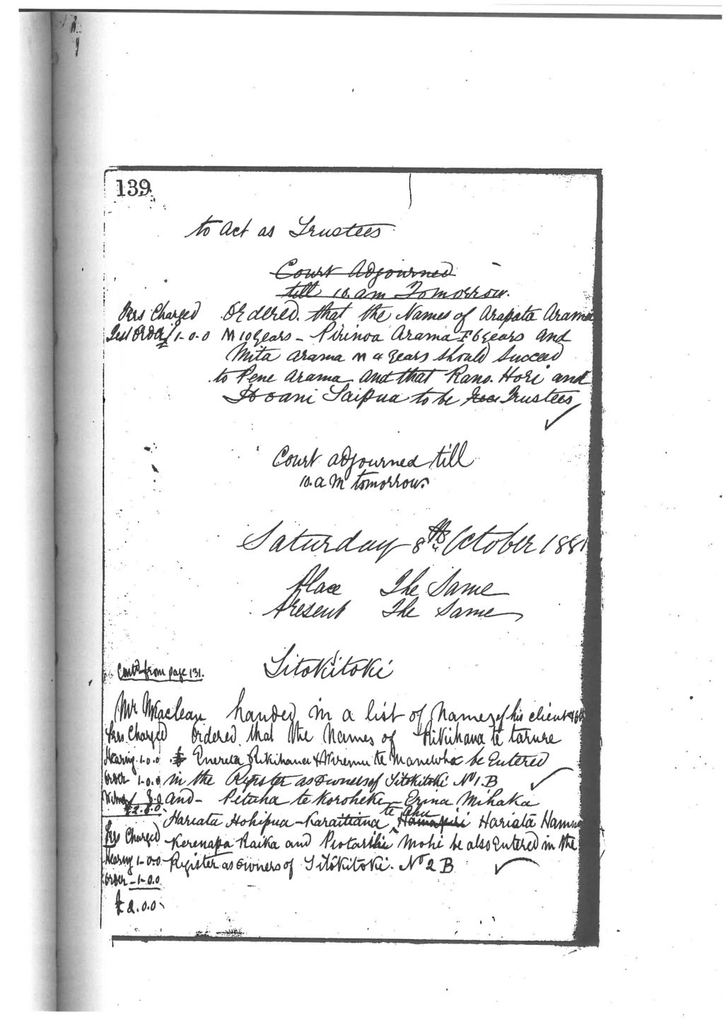 139
to Act as Trustees
Court Adjourned
till 10. am Tomorrow.
Fees Charged Ordered that the Names of Arapata Arama
1-0-0 M 10 years - Pirinoa Arama F 6 years and
Mita Arama M 4 years should Succeed
to Pene Arama and that Rano. Hori and
Hoani Taipua to be Trustees
Court adjourned till
10. a M tomorrow.
Saturday 8th October 1881
Place The Same
Present The Same
Contd from page 131. Titokitoki
Mr Maclean handed in a list of names of his clients
Fees Charged Ordered that the Names of Rikihana te tarure
Hearing 1.0.0 Enereta Rikihana & Wiremu te Manewha be Entered
Order 1.0.0 in the Register as owners of Titokitoki No 1.B
£2. and - Pitiha te Koroheke - Erina Mihaka
Hariata Hohipua - Karaitiana te Ahu Hariata
Fees Charged Kerenapa Haika and Mohi be also Entered in the
Hearing 1-0-0 Register as owners of Titokitoki. No 2 B
Order - 1-0.0
£2.0.0